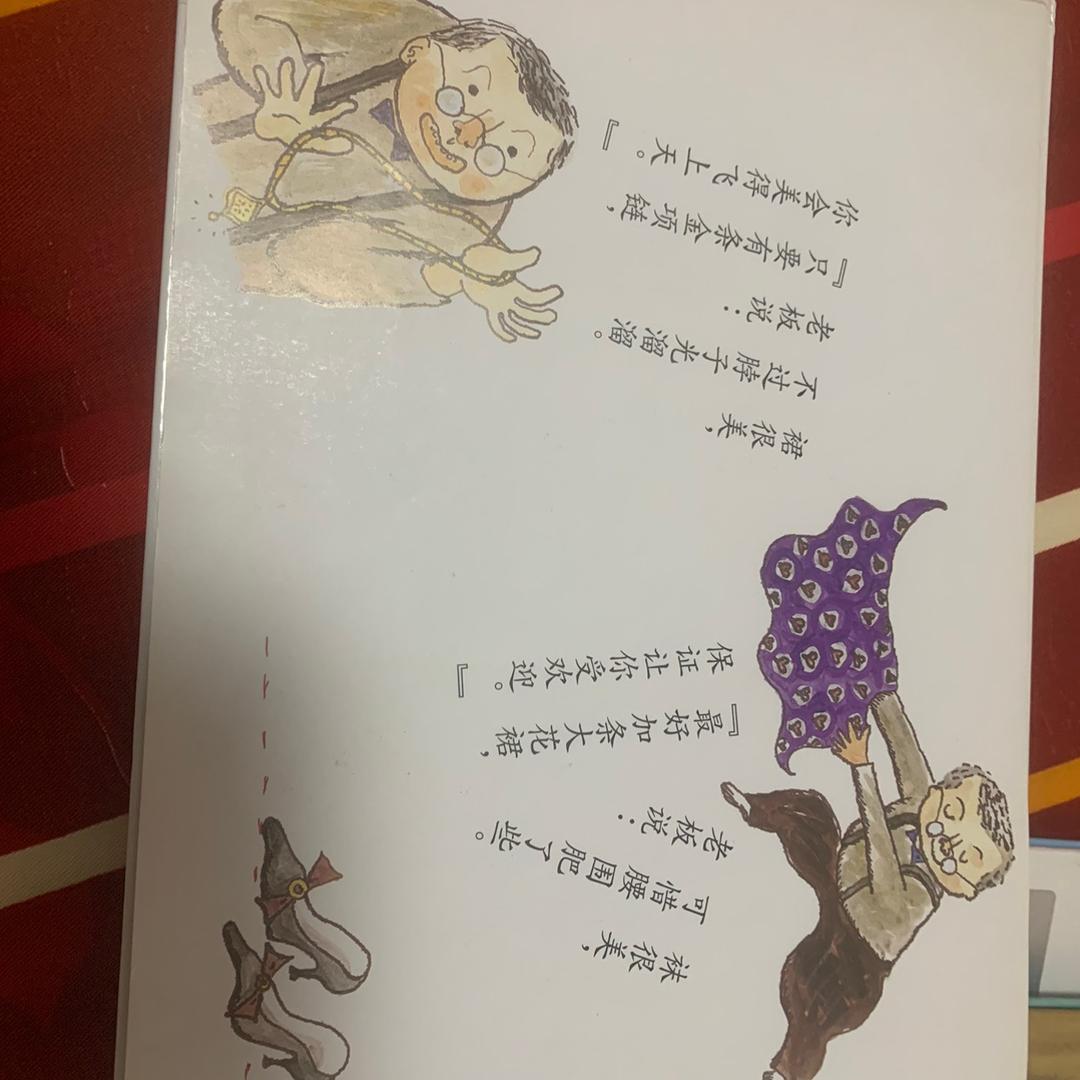 袜很美，
可惜腰围肥了些。
老板说：
『最好加条大花裙，
保证让你受欢迎。』
裙很美，
不过脖子光溜溜。
老板说：
『只要有条金项链，
你会美得飞上天。』